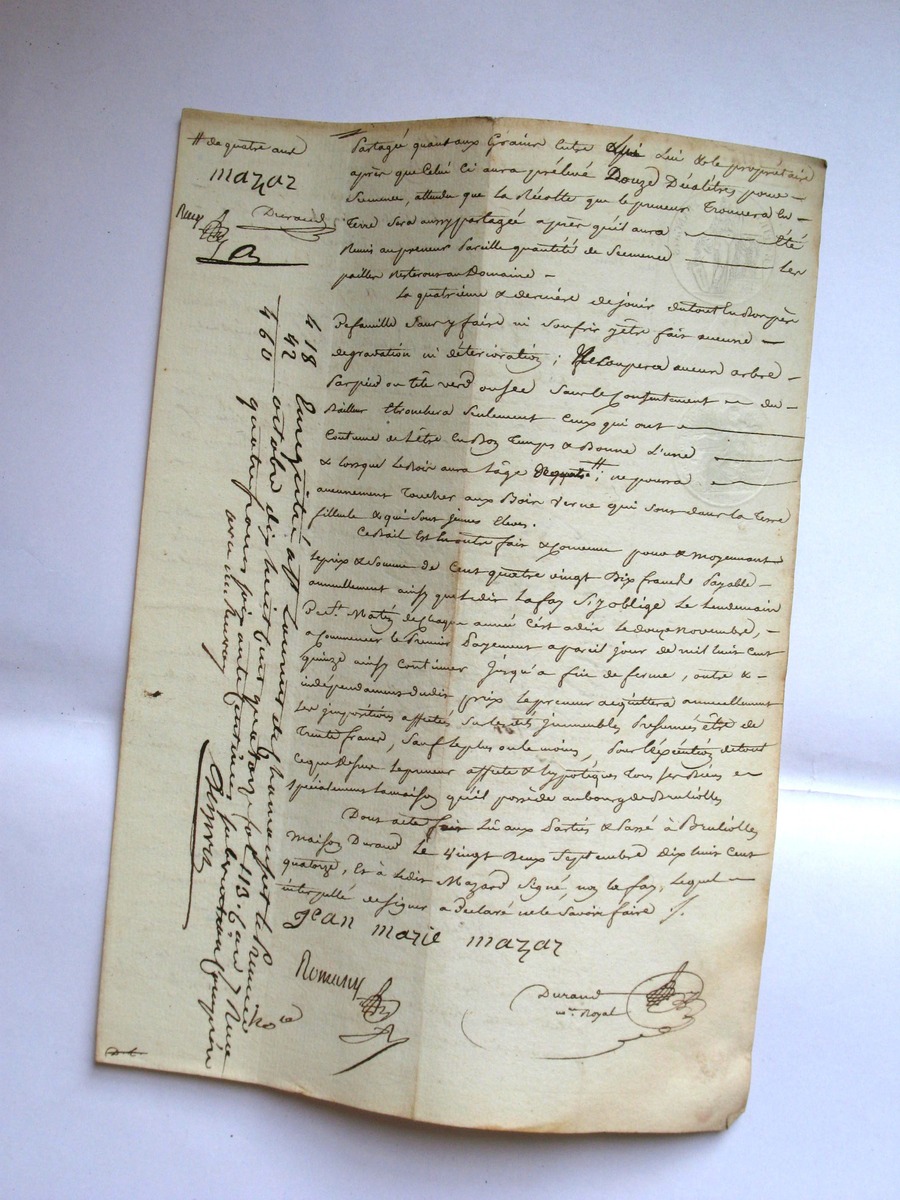 # de quatre ans
mazar
Durand
Partagée quant aux Grains Entre Lui & le propriétaire
après que Celui Ci aura prélevé Douze Décalitres pour
Semence, attendu que la Récolte que le preneur Trouvera En
Terre Sera aussy partagée après qu'il aura été
Remis au preneur Pareille quantité de Seemence Les
pailles Resteront au Domaine
La quatrième & dernière de jouir du tout En Bon père
De famille Sans y faire ni Soufrir y être fait aucune
degradation ni déterioration; Ne Coupera aucun arbre
Par pied ou tête verd ou sec Sans le Consentement du
Bailleur Etronchera Seulement Ceux qui ont
Coutume de L'être En Bon Temps & Bonne Lune
& lorsque le Bois aura l'âge De quatre #; ne pourra
aucunement Toucher aux Bois Verne qui Sont dans la Terre
& qui Sont jeunes Eleves.
Ce Bail Est En outre fait & Convenu pour & Moyennant
Le prix & Somme de Cent quatre vingt Dix francs Payable
annuellement ainsy que Ledit Lafay S'y oblige Le Lendemain
De St. Martin de Chaque année C'est a dire Le douze Novembre,
a Commencer le Premier Payement a pareil Jour de mil huit cent
quinze ainsy Continuer Jusqu'à fin de ferme, outre &
indépendamment dudit prix Le preneur acquittera annuellement
Les impositions affectées Sur lesdits Immeubles Présumées être de
Trente francs, Sauf le plus ou le moins, Pour l'Exécution de tout
Ce que Dessus Le preneur affecte & hypotéque Tous Ses Biens
Spécialement La maison qu'il possède au bourg de Brullioles
Dont acte fait Lû aux Parties & Passé à Brullioles
Maison Durand Le Vingt Deux Septembre Dix huit Cent
quatorze, Et à Ledit Mazard Signé, non le fay, Lequel
interpellé de Signer a Declaré ne le Savoir faire
Jean marie mazar
Romany
Durand
Nre Royal
Enregistré à St Laurent de Chamousset le Premier
octobre dix huit cent quatorze fol 113 Ro Ce 7 Reçu
quatre francs soixante centimes subvention comprise
4 18
42
4 60